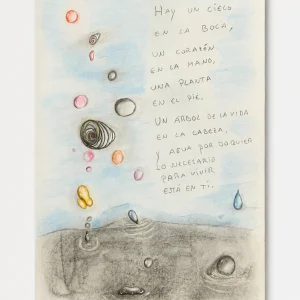 HAY UN CIEGO
EN LA BOCA,
UN CORAZÓN
EN LA MANO,
UNA PLANTA
EN EL PIE,
UN ARBOL DE LA VIDA
EN LA CABEZA,
Y AGUA POR DOQUIER
LO NECESARIO
PARA VIVIR
ESTÁ EN TI.